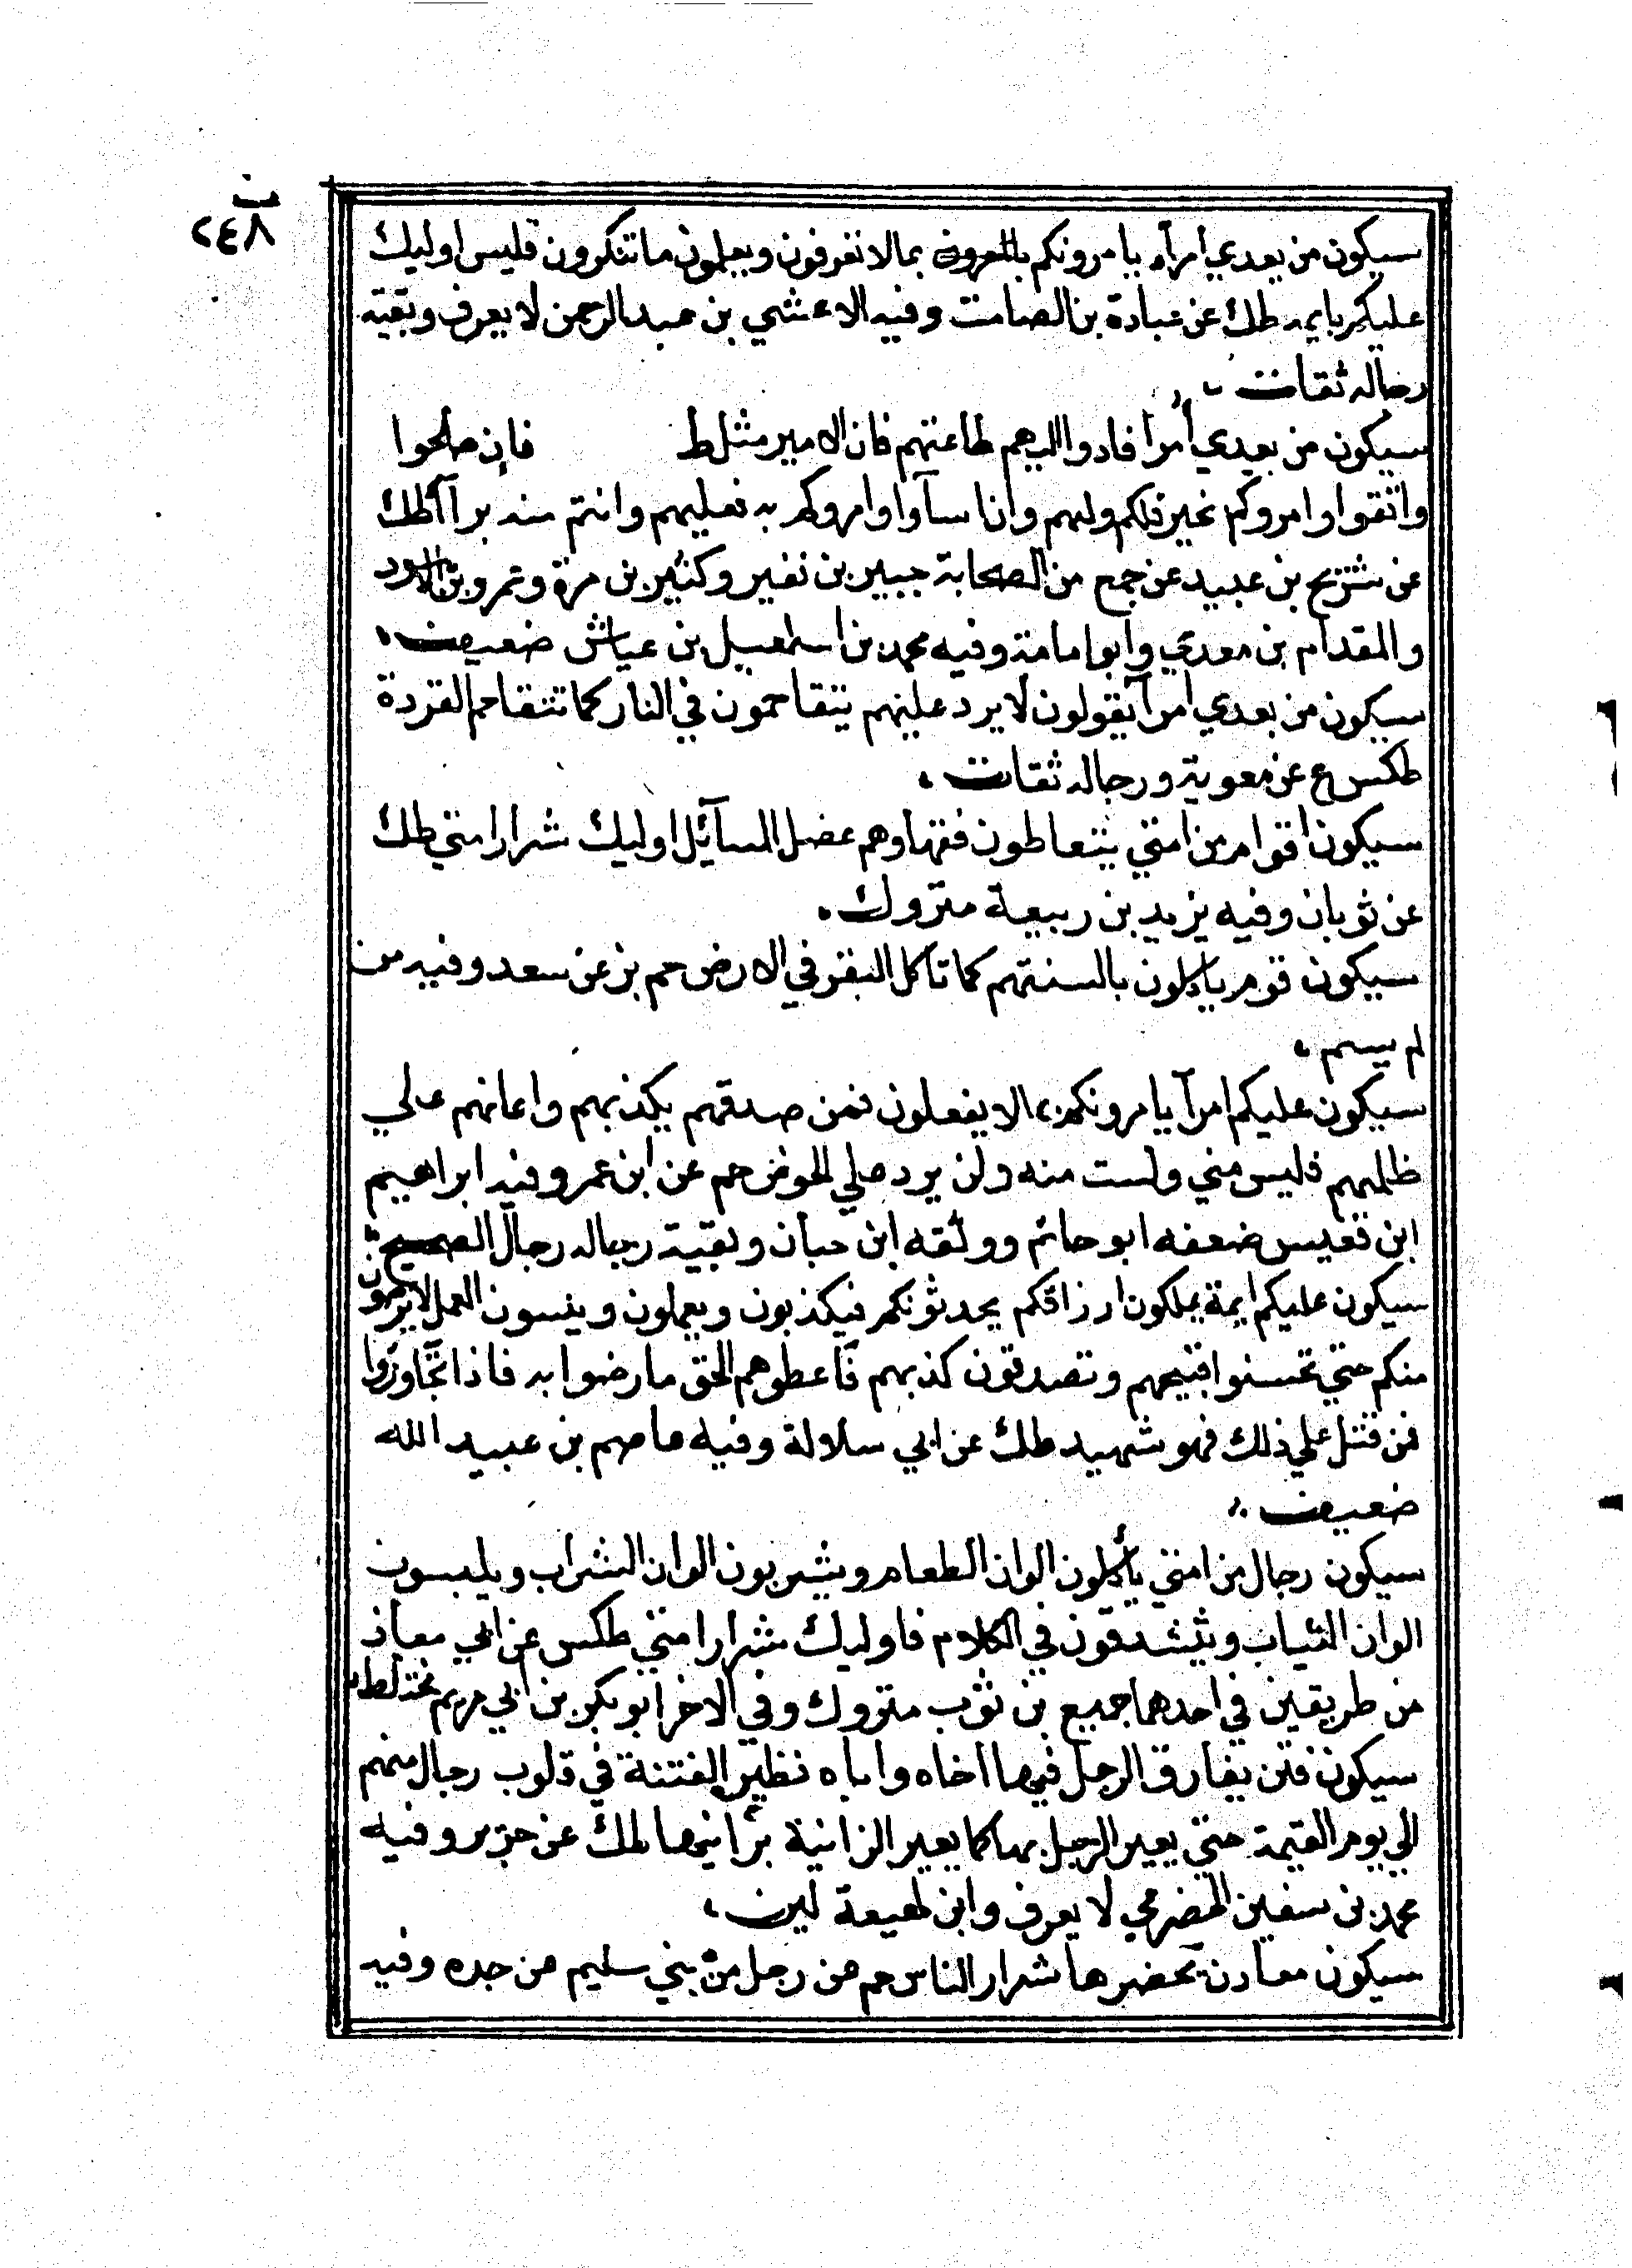 ت
٢٤٨
سيكون من بعدي امرآء يامرونكم بالمعروف بمالا تعرفون ويعملون ما تنكرون فليس اوليك
عليكم بايمه طك عن عبادة بن الصامت وفيه الاعشي بن عبد الرحمن لا يعرف وبقية
رجاله ثقات
سيكون من بعدي أمرا فادوا اليهم طاعتهم فان الامير مثل ط فإن صلحوا
واتقوا وامروكم بخير فلكم ولهم وان اساؤا وامروكم به فعليهم وانتم منه برآ اطك
عن شريح بن عبيد عن جمع من الصحابة جبير بن نفير وكثير بن مرة وعمرو بن الاسود
والمقدام بن معدي وابو امامة وفيه محمد بن اسمعيل بن عياش ضعيف
سيكون من بعدي امرآ يقولون لا يرد عليهم يتقاحمون في النار كما تتقاحم القردة
طكس ع عن معوية ورجاله ثقات
سيكون اقوام من امتي يتعاطون فقهاوهم عضل المسآيل اوليك شرار امتي طك
عن ثوبان وفيه يزيد بن ربيعة متروك
سيكون قوم ياكلون بالسنتهم كما تاكل البقر في الارض حم بز عن سعد وفيه من
لم يسم
سيكون عليكم امرآ يامرونكم بما لا يفعلون فمن صدقهم بكذبهم واعانهم علي
ظلمهم فليس مني ولست منه ولن يرد علي الحوض حم عن ابن عمر وفيه ابراهيم
ابن قعيس ضعفه ابو حاتم ووثقه ابن حبان وبقية رجاله رجال الصحيح
سيكون عليكم ايمة يملكون ارزاقكم يحدثونكم فيكذبون ويعملون وينسون العمل لا يرضون
منكم حتي تحسنوا قبيحهم وتصدقون كذبهم فأعطوهم الحق ما رضوا به فاذا تجاوزوا
فمن قتل علي ذلك فهو شهيد طك عن ابي سلالة وفيه عاصم بن عبيد الله
ضعيف
سيكون رجال من امتي يأكلون الوان الطعام ويشربون الوان الشراب ويلبسون
الوان الثياب ويتشدقون في الكلام فاوليك شرار امتي طكس عن ابي معاذ
من طريقين في احدهما جميع بن ثوب متروك وفي الاخر ابو بكر بن ابي مريم مختلط
سيكون فتن يفارق الرجل فيها اخاه واباه تطير الفتنة في قلوب رجال منهم
الي يوم القيمة حتي يعير الرجل بها كما يعير الزانية بزانيها طك عن وفيه
محمد بن سفين الحضرمي لا يعرف وابن لهيعة لين
سيكون معادن يحضرها شرار الناس حم عن رجل من بني سليم عن جده وفيه